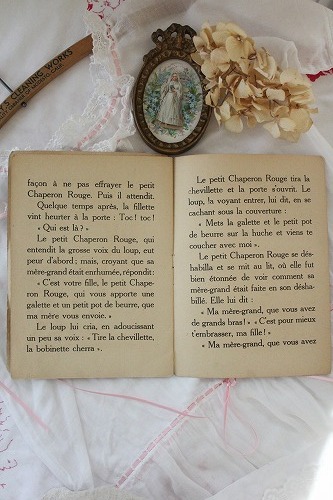 S CLEANING WORKS
façon à ne pas effrayer le petit
Chaperon Rouge. Puis il attendit.
Quelque temps après, la fillette
vint heurter à la porte : Toc ! toc !
« Qui est là ? »
Le petit Chaperon Rouge, qui
entendit la grosse voix du loup, eut
peur d'abord ; mais, croyant que sa
mère-grand était enrhumée, répondit :
« C'est votre fille, le petit Chape-
ron Rouge, qui vous apporte une
galette et un petit pot de beurre, que
ma mère vous envoie. »
Le loup lui cria, en adoucissant
un peu sa voix : « Tire la chevillette,
la bobinette cherra ».
Le petit Chaperon Rouge tira la
chevillette et la porte s'ouvrit. Le
loup, la voyant entrer, lui dit, en se
cachant sous la couverture :
« Mets la galette et le petit pot
de beurre sur la huche et viens te
coucher avec moi ».
Le petit Chaperon Rouge se dés-
habilla et se mit au lit, où elle fut
bien étonnée de voir comment sa
mère-grand était faite en son désha-
billé. Elle lui dit :
« Ma mère-grand, que vous avez
de grands bras ! » « C'est pour mieux
t'embrasser, ma fille ! »
« Ma mère-grand, que vous avez